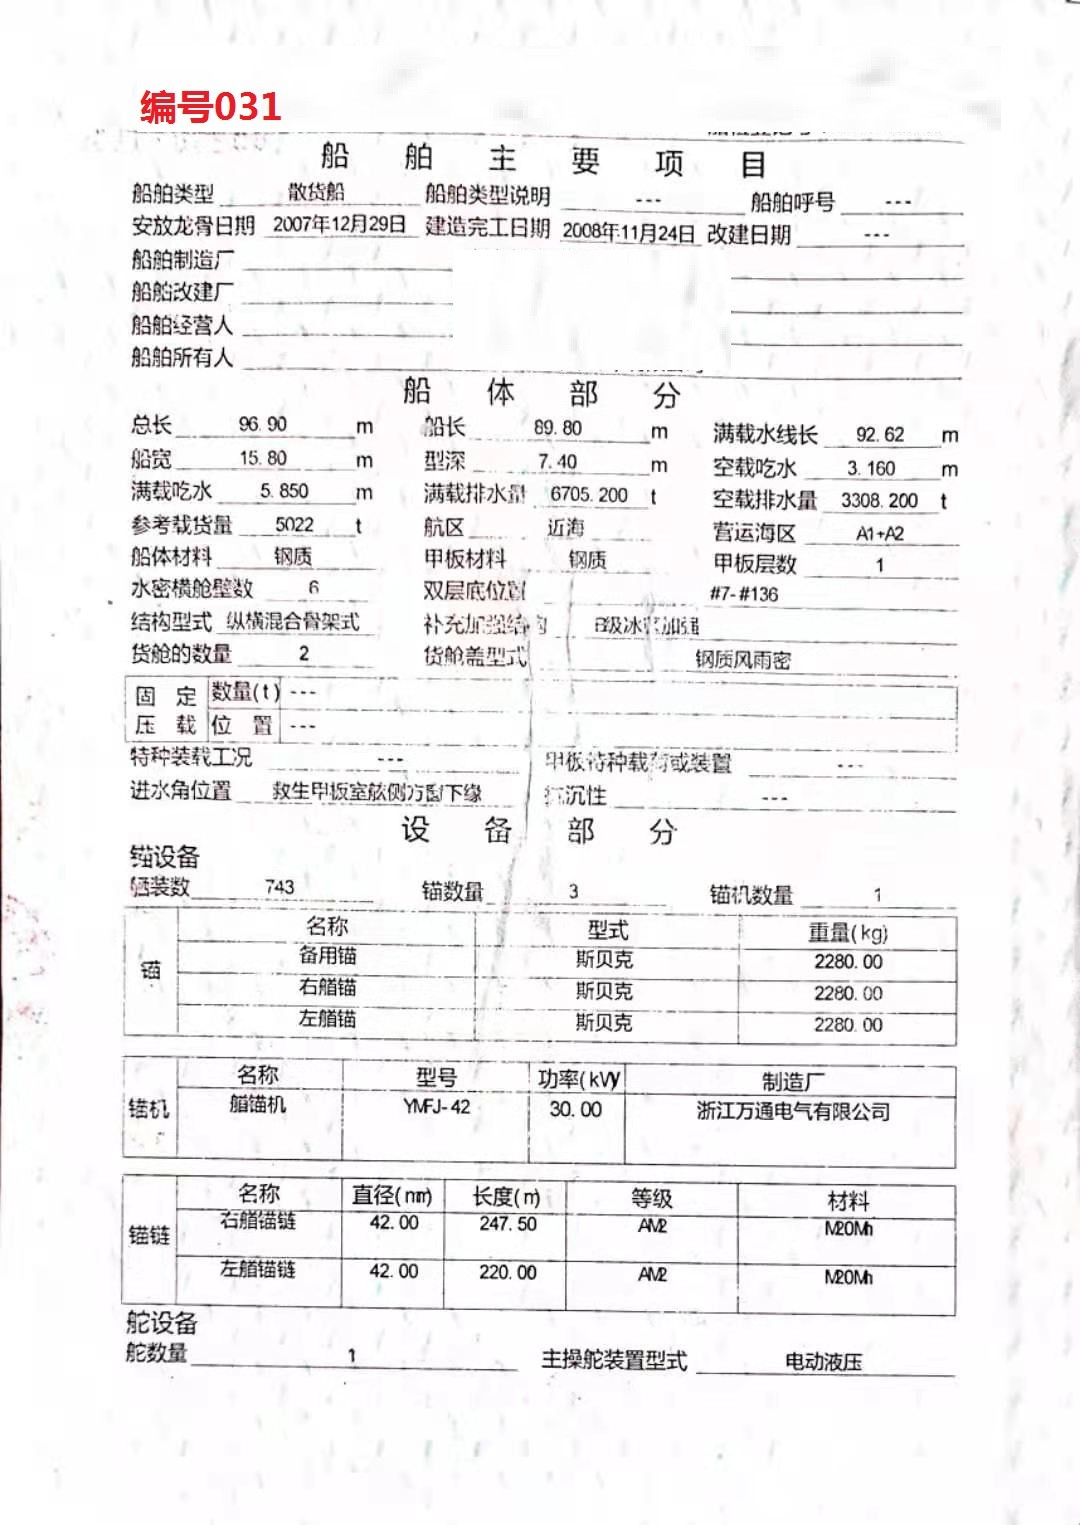 编号031
船舶主要项目
船舶类型 散货船 船舶类型说明 --- 船舶呼号 ---
安放龙骨日期 2007年12月29日 建造完工日期 2008年11月24日 改建日期 ---
船舶制造厂
船舶改建厂
船舶经营人
船舶所有人
船体部分
总长 96.90 m 船长 89.80 m 满载水线长 92.62 m
船宽 15.80 m 型深 7.40 m 空载吃水 3.160 m
满载吃水 5.850 m 满载排水量 6705.200 t 空载排水量 3308.200 t
参考载货量 5022 t 航区 近海 营运海区 A1+A2
船体材料 钢质 甲板材料 钢质 甲板层数 1
水密横舱壁数 6 双层底位置 #7-#136
结构型式 纵横混合骨架式 补充加强结构 B级冰区加强
货舱的数量 2 货舱盖型式 钢质风雨密
固定压载 数量(t) ---
位置 ---
特种装载工况 --- 甲板特种载荷或装置 ---
进水角位置 救生甲板室舷侧方窗下缘 抗沉性 ---
设备部分
锚设备
舾装数 743 锚数量 3 锚机数量 1
锚 名称 型式 重量(kg)
备用锚 斯贝克 2280.00
右艏锚 斯贝克 2280.00
左艏锚 斯贝克 2280.00
锚机 名称 型号 功率(kW) 制造厂
艏锚机 YMFJ-42 30.00 浙江万通电气有限公司
锚链 名称 直径(mm) 长度(m) 等级 材料
右艏锚链 42.00 247.50 AM2 M20Mn
左艏锚链 42.00 220.00 AM2 M20Mn
舵设备
舵数量 1 主操舵装置型式 电动液压